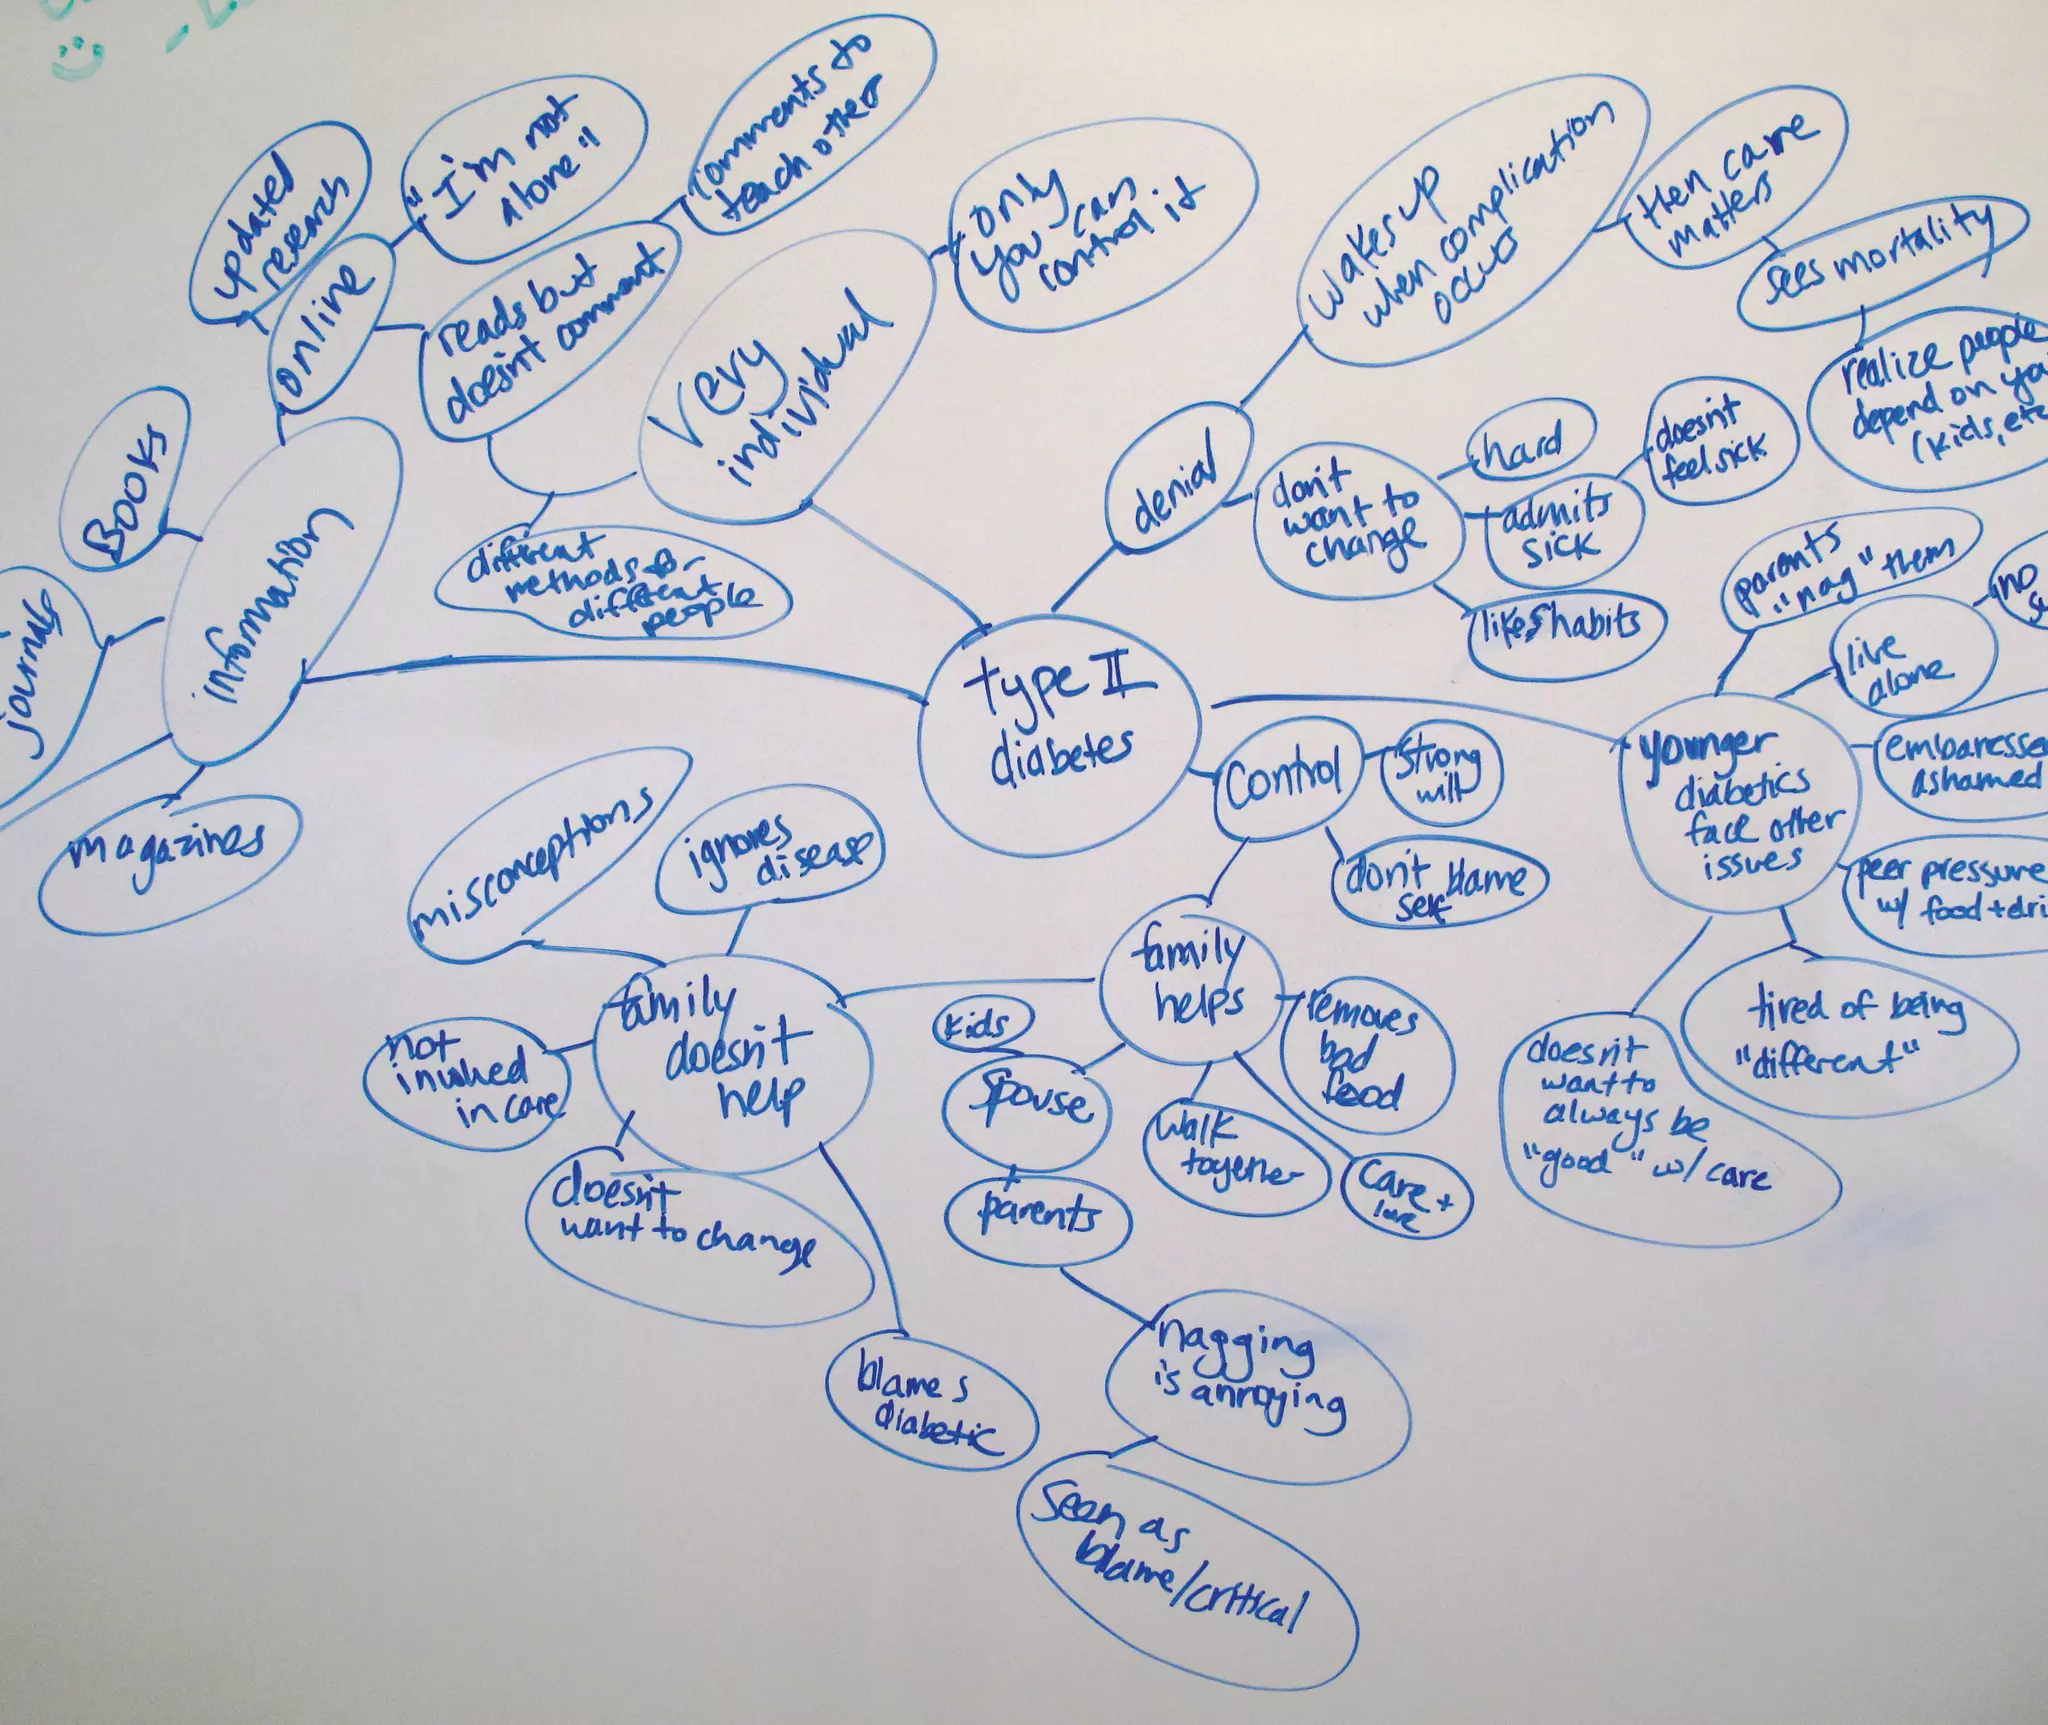 updated
research
online
"I'm not
alone"
reads but
doesn't comment
comments to
teach other
very
individual
only
you can
control it
different
methods for
different
people
Books
journals
information
magazines
wakes up
when complication
occurs
then care
matters
sees mortality
realize people
depend on you
(kids, etc
denial
don't
want to
change
hard
admits
sick
doesn't
feel sick
likes habits
type II
diabetes
control
strong
will
don't blame
self
parents
"nag" them
live
alone
no
younger
diabetics
face other
issues
embaresse
ashamed
peer pressure
w/ food + dri
tired of being
"different"
doesn't
want to
always be
"good" w/ care
misconceptions
ignores
disease
family
doesn't
help
not
involved
in care
doesn't
want to change
blames
diabetic
family
helps
kids
spouse
parents
walk
together
care +
love
removes
bad
food
nagging
is annoying
seen as
blame/critical